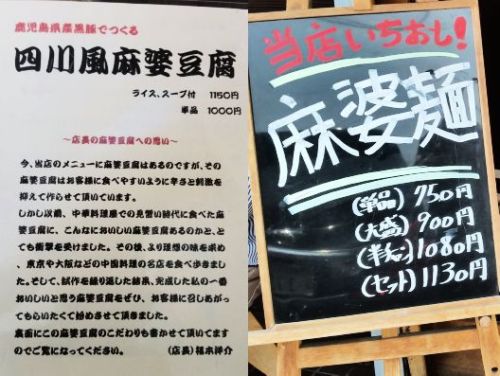 鹿児島県産黒豚でつくる
四川風麻婆豆腐
ライス、スープ付 1150円
単品 1000円
～店長の麻婆豆腐への思い～
今、当店のメニューに麻婆豆腐はあるのですが、その
麻婆豆腐はお客様に食べやすいように辛さと刺激を
抑えて作らせて頂いています。
しかし以前、中華料理屋での見習い時代に食べた麻
婆豆腐に、こんなにおいしい麻婆豆腐あるのかと、と
ても衝撃を受けました。その後、より理想の味を求め
、東京や大阪などの中国料理の名店を食べ歩きまし
た。そして、試作を繰り返した結果、完成した私の一番
おいしいと思う麻婆豆腐をぜひ、お客様に召しあがっ
てもらいたくて始めさせて頂きました。
裏面にこの麻婆豆腐のこだわりも書かせて頂いてます
のでご覧になってください。 (店長)
当店いちおし!
麻婆麺
(単品) 750円
(大盛) 900円
(半チャン) 1080円
(セット) 1130円